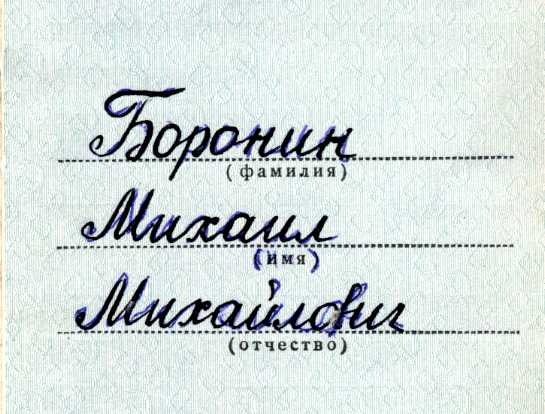 Боронин
(фамилия)
Михаил
(имя)
Михайлович
(отчество)